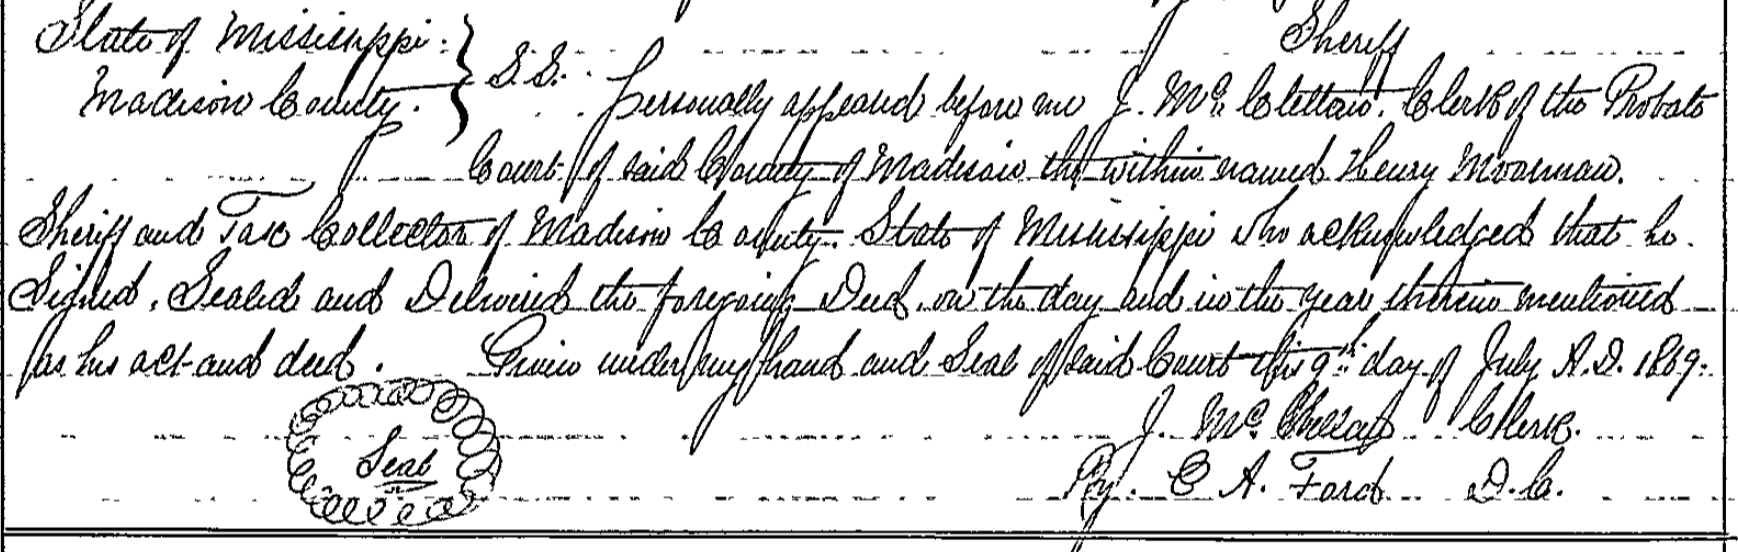 Sheriff
State of Mississippi : } S.S.
Madison County. } Personally appeared before me J. Mc. Clellan. Clerk of the Probate
Court of said County of Madison the within named Henry Moorman.
Sheriff and Tax Collector of Madison County. State of Mississippi who acknowledged that he.
Signed, Sealed and Delivered the foregoing Deed, on the day and in the year therein mentioned
as his act and deed. Given under my hand and Seal of said Court this 9th day of July A.D. 1869.
J. Mc. Clellan Clerk.
Seal
By. C A. Ford D.C.